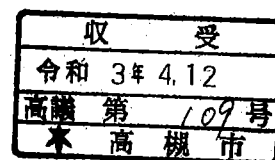 収 受
令和 3年 4.12
高議 第 109 号
★ 高 槻 市